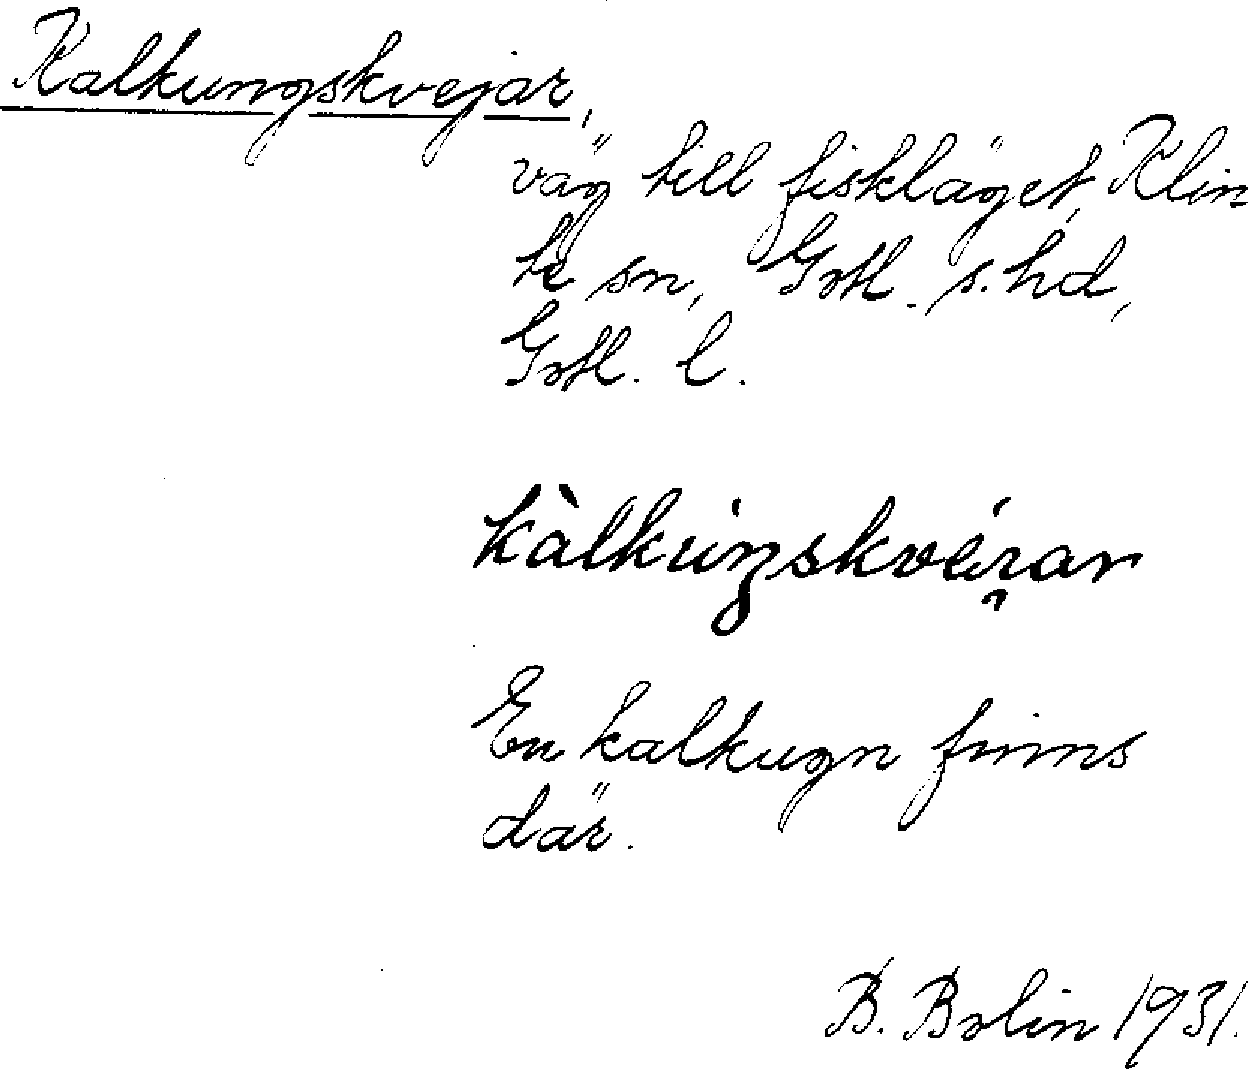 Kalkungskvejar,
väg till fiskläget, Klin
te sn, Gotl. s. hd,
Gotl. l.
En kalkugn finns
där.
B. Bolin 1931.